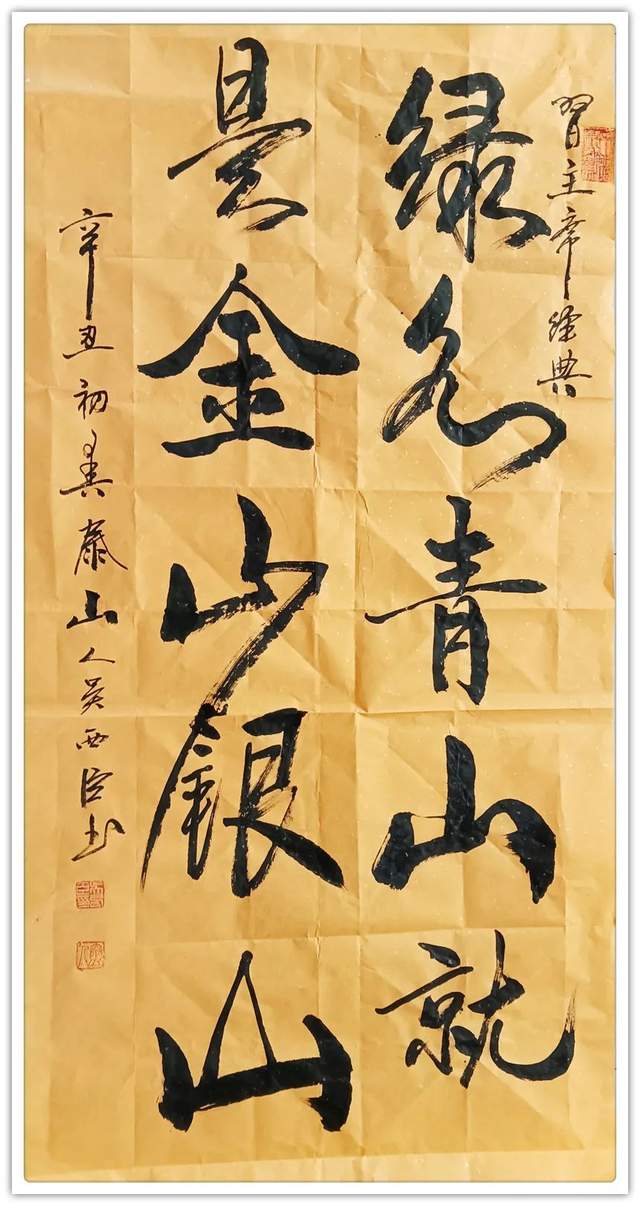 習主席经典
绿水青山就
是金山銀山
辛丑初泰山人吴西臣书